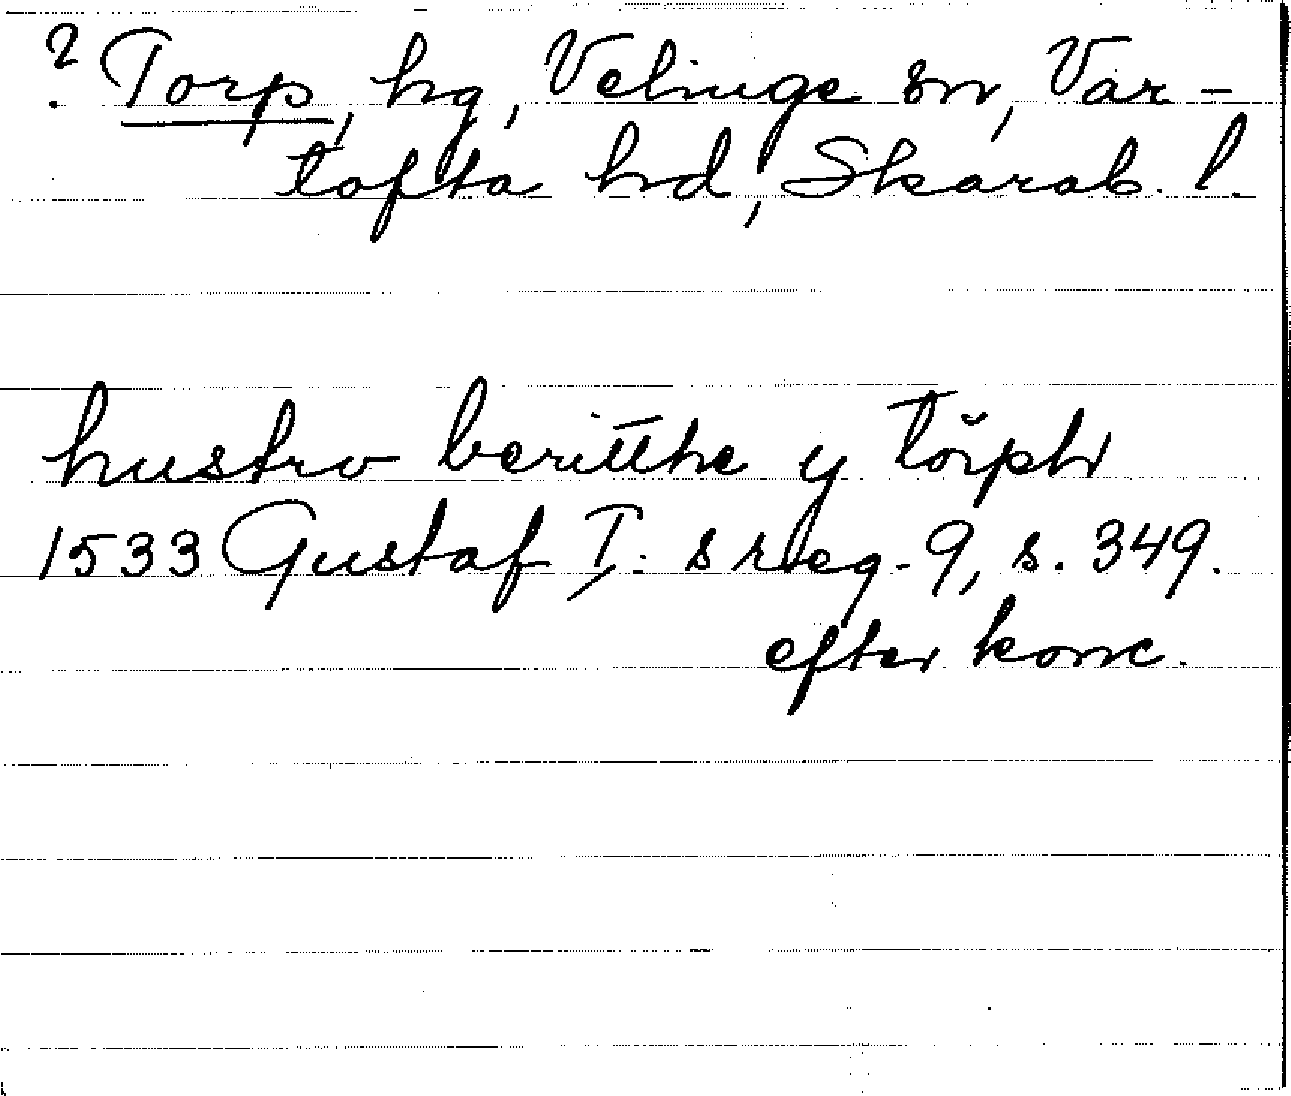 ? Torp, hg, Velinge sn, Var-
tofta hd, Skarab. l.
hustrv beritthe y törph
1533 Gustaf I:s reg. 9, s. 349.
efter konc.